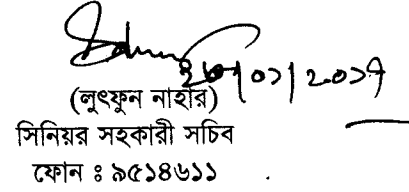 ০১|২০১৭
(লুৎফুন নাহার)
সিনিয়র সহকারী সচিব
ফোন ঃ ৯৫১৪৬১১